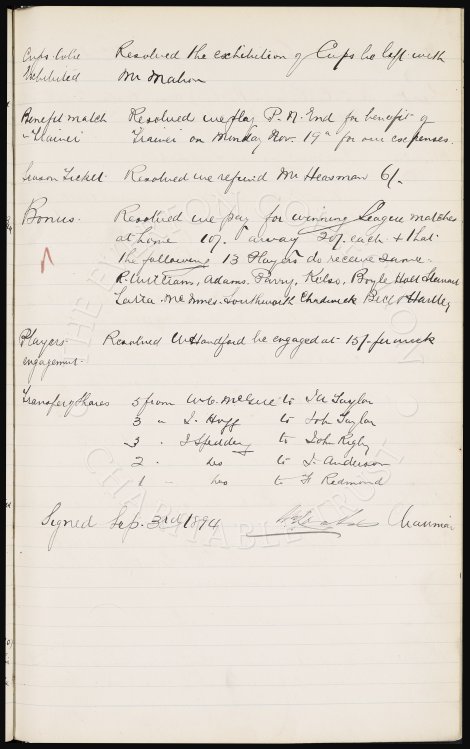 Cups to be Resolved the exhibition of Cups be left with
Exhibited Mr Mahon
Benefit match Resolved we play P. N. End for benefit of
- Trainer Trainer on Monday Nov. 19th for our expenses.
Season Ticket. Resolved we refund Mr Heasman 6/-
Bonus. Resolved we pay for winning League matches
at home 10/- & away 20/- each & that
the following 13 Players do receive same.
R. Williams, Adams. Parry, Kelso, Boyle Holt Stewart
Latta. McInnes. Southworth Chadwick Bell & Hartley
Players Resolved W Handford be engaged at 15/- per week
engagement.
Transfer of Shares 5 from W. C. to Taylor
3 " J. to John Taylor
3 " J Spedding to John Rigby
2 " to J. Anderson
1 " to F Redmond
Signed Sep. 3rd 1894 Chairman
THE EVERTON COLLECTION
CHARITABLE TRUST